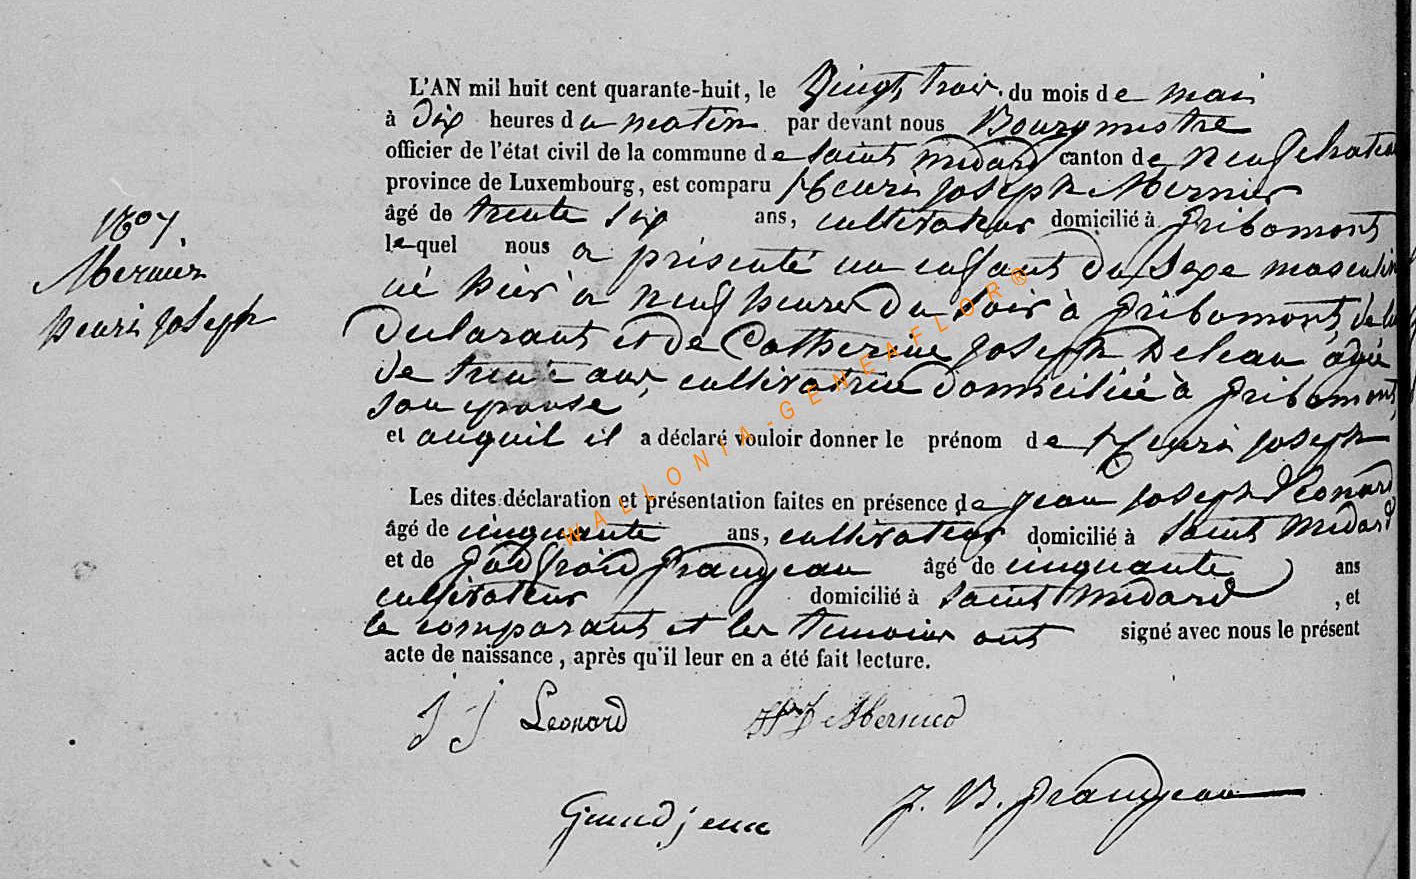 L'AN mil huit cent quarante-huit, le Vingt trois du mois de mai
à Dix heures du matin par devant nous Bourgmestre
officier de l'état civil de la commune de Saint Médard canton de Neufchateau
province de Luxembourg, est comparu Henri Joseph Mernier
âgé de trente six ans, cultivateur domicilié à Gribomont
lequel nous a présenté un enfant du Sexe masculin
né hier à neuf heures du soir à Gribomont, de lui
Déclarant et de Catherine Joseph Deleau âgée
de trente ans cultivatrice Domiciliée à Gribomont,
son epouse,
et auquel il a déclaré vouloir donner le prénom de Henri Joseph
Les dites déclaration et présentation faites en présence de Jean Joseph Léonard
âgé de cinquante ans, cultivateur domicilié à Saint Médard
et de Godfroid Grandjean âgé de cinquante ans
cultivateur domicilié à Saint Médard , et
le comparant et les temoins ont signé avec nous le présent
acte de naissance, après qu'il leur en a été fait lecture.
Mernier
henri Joseph
J J Leonard
Mernier
Grandjean
J. B. Grandjean
WALLONIA-GENEAFLOR®